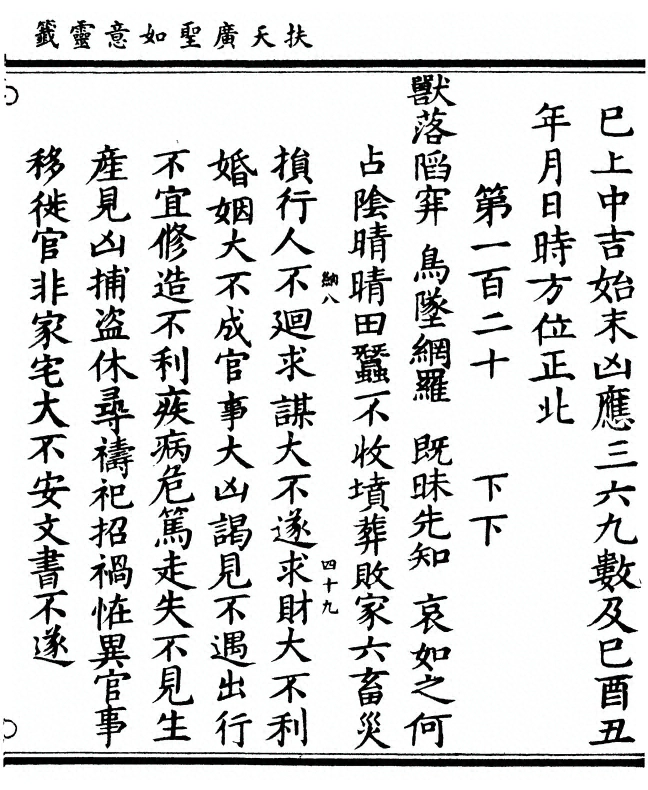 扶天廣聖如意靈籤
巳上中吉始末凶應三六九數及巳酉丑
年月日時方位正北
第一百二十 下下
獸落陷穽 鳥墜網羅 既昧先知 哀如之何
占陰晴晴田蠶不收墳葬敗家六畜災
納八 四十九
損行人不廻求謀大不遂求財大不利
婚姻大不成官事大凶謁見不遇出行
不宜修造不利疾病危篤走失不見生
產見凶捕盜休尋禱祀招禍恠異官事
移徙官非家宅大不安文書不遂